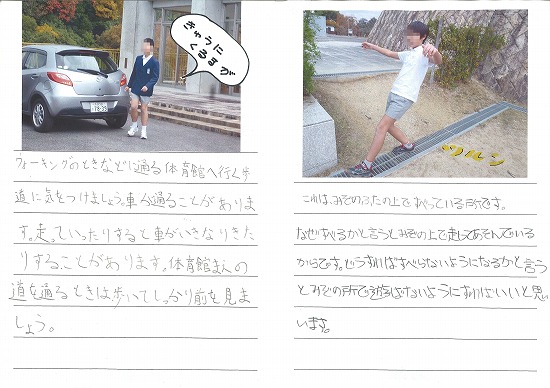 きゅうに
くるまが
ウォーキングのときなどに通る体育館へ行く歩
道に気をつけましょう。車が通ることがありま
す。走っていったりすると車がいきなりきた
りすることがあります。体育館まえの
道を通るときは歩いてしっかり前を見ま
しょう。
ツルーン
これは、みぞのふたの上ですべっている所です。
なぜすべるかと言うとみぞの上で走ってあそんでいる
からです。どうすればすべらないようになるかと言う
とみぞの所で遊ばないようにすればいいと思
います。